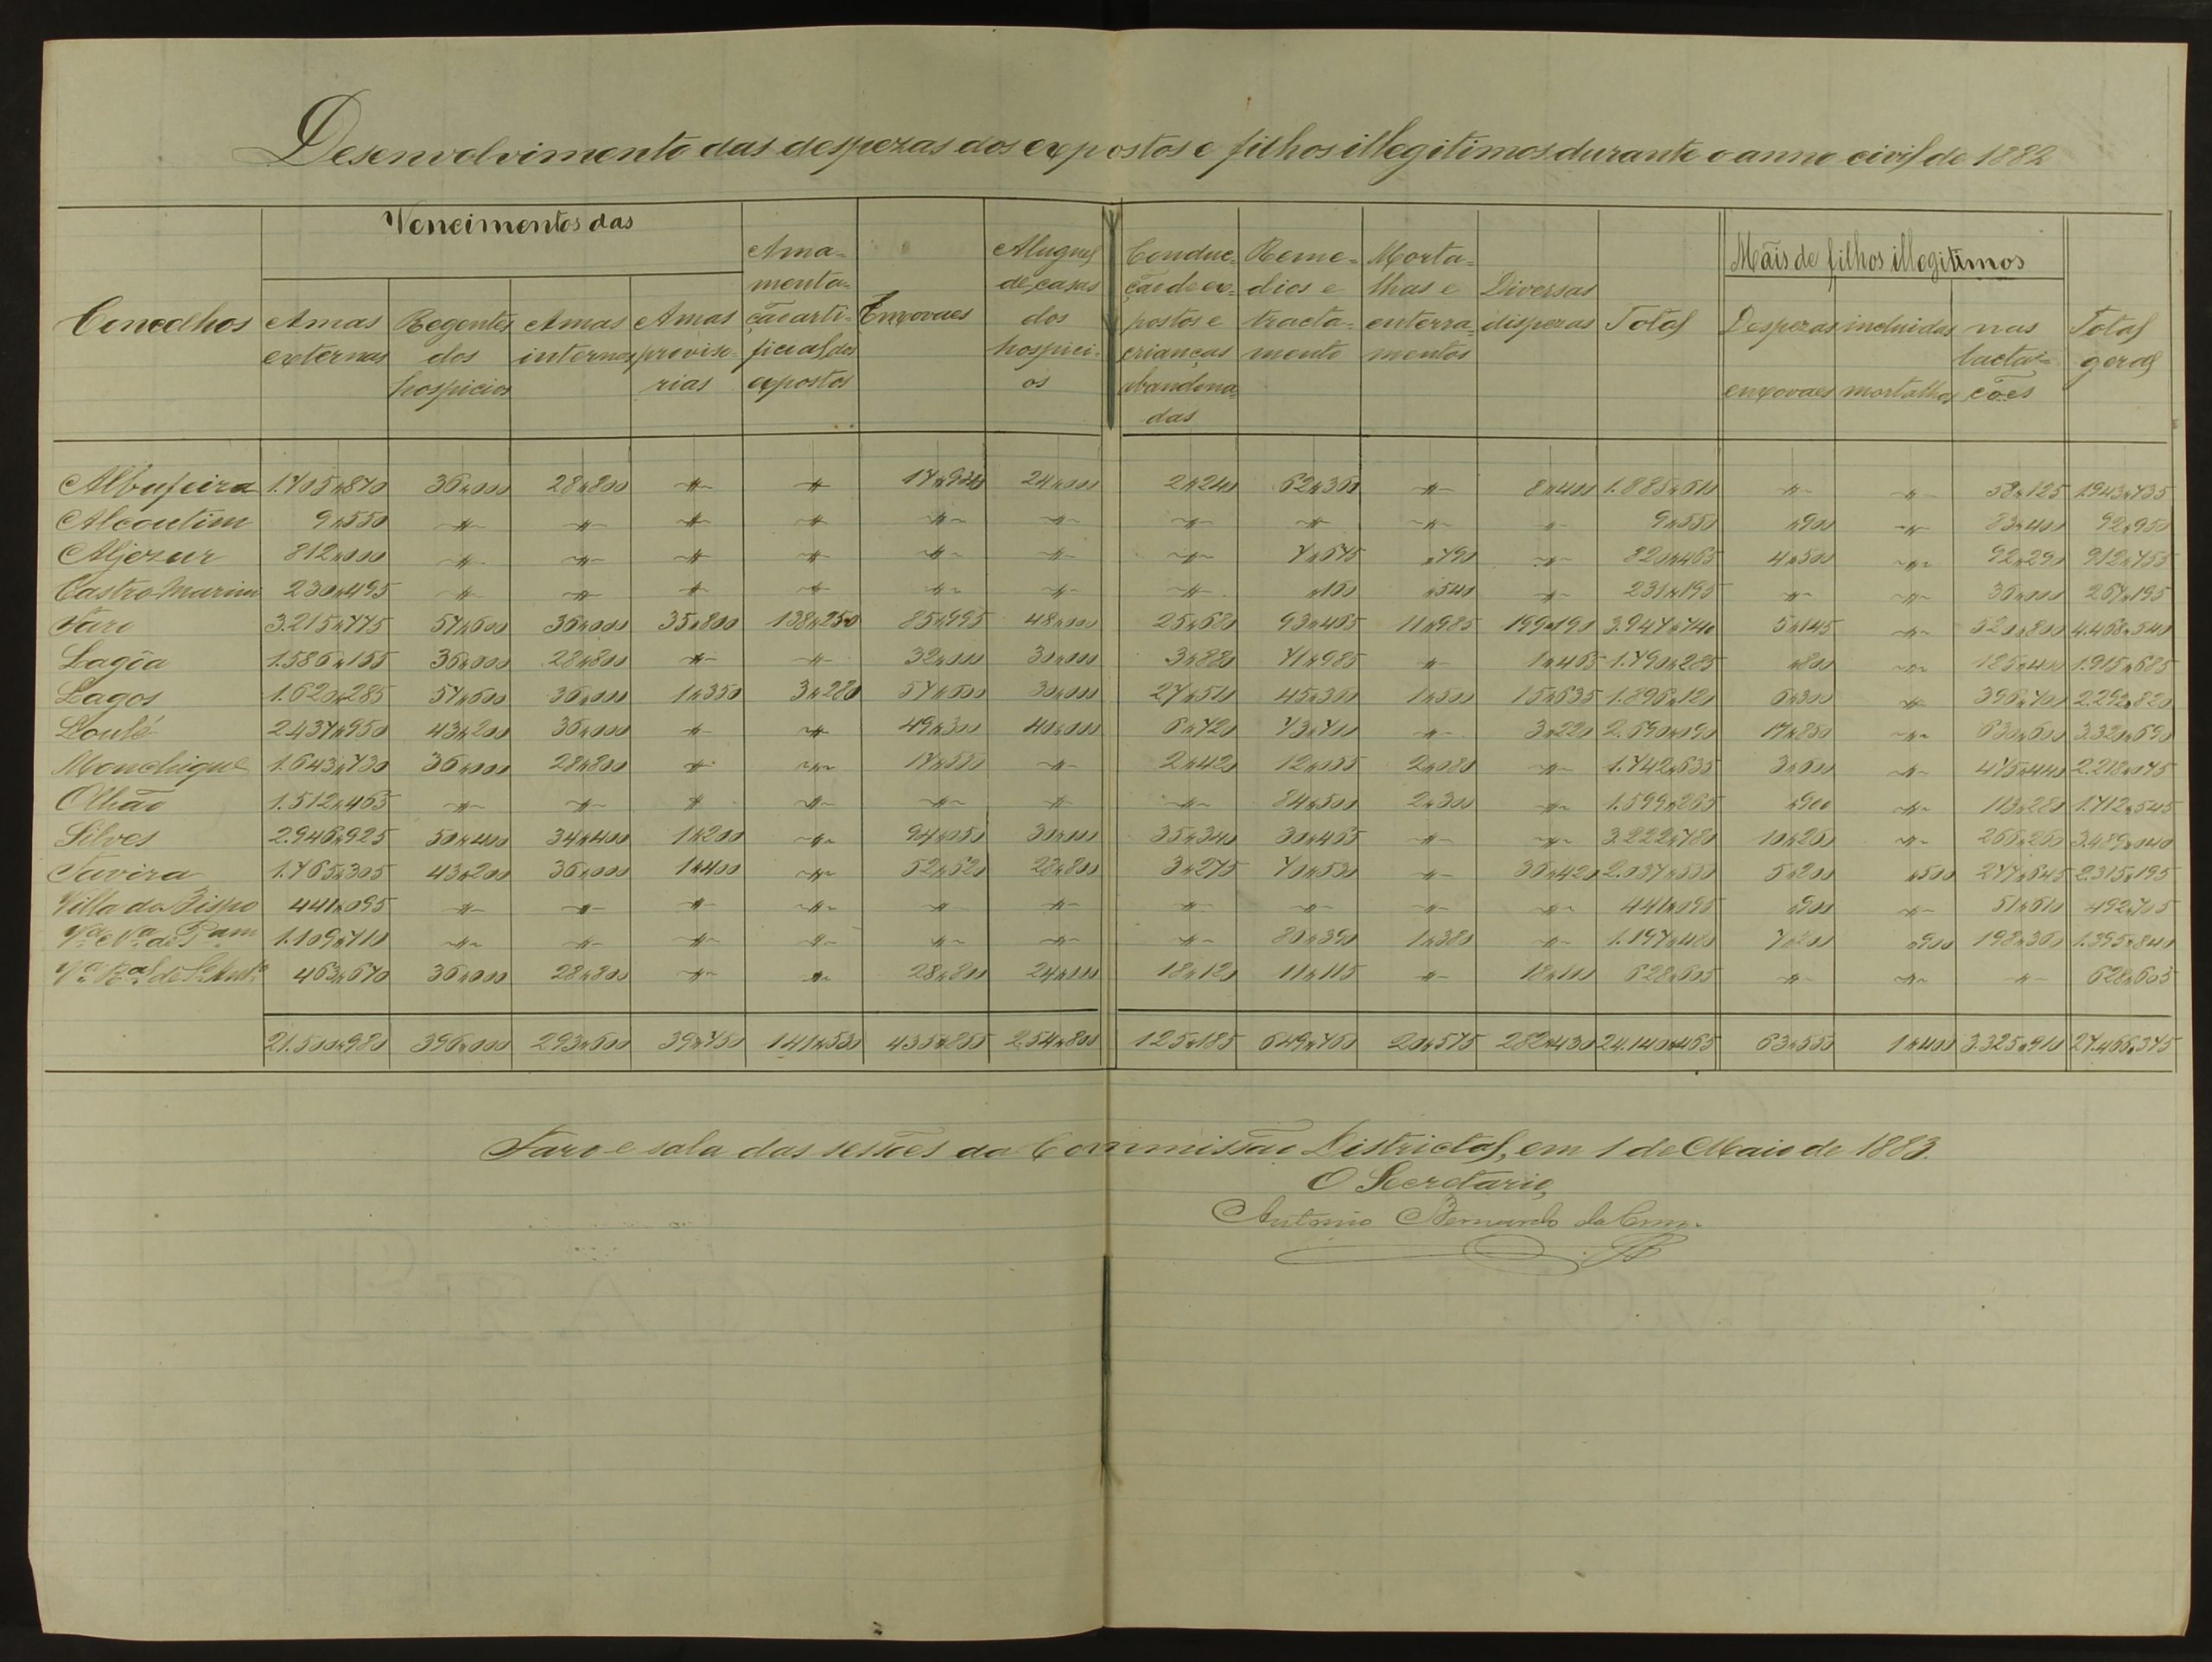 Desenvolvimento das despezas dos expostos e filhos illegitimos durante o anno civil de 1882
Vencimentos das
Mãis de filhos illegitimos
Concelhos
Amas externas
Regentes dos hospicios
Amas internas
Amas provisorias
Ama-
menta-
ção arti-
ficial dos
expostos
Enxovaes
Aluguel
de casas
dos
hospici-
os
Conduc-
ção de ex-
postos e
crianças
abandona-
das
Reme-
dios e
tracta-
mento
Morta-
lhas e
enterra-
mentos
Diversas
dispezas
Total
Despezas incluidas nas
enxovaes mortalhas lactações
Total
geral
Albufeira 1.705$870 36$000 28$800 -$- -$- 17$940 24$000 2$240 62$360 -$- 8$400 1.885$610 -$- -$- 58$125 1943$735
Alcoutim 9$550 -$- -$- -$- -$- -$- -$- -$- -$- -$- -$- 9$550 $900 -$- 83$400 92$950
Aljezur 812$000 -$- -$- -$- -$- -$- -$- -$- 7$675 $790 -$- 820$465 4$500 -$- 92$290 912$755
Castro Marim 230$495 -$- -$- -$- -$- -$- -$- -$- $160 $540 -$- 231$195 -$- -$- 36$000 267$195
Faro 3.215$775 57$600 36$000 35$800 138$250 85$995 48$000 25$680 93$465 11$985 199$190 3.947$740 5$145 -$- 520$800 4.468$540
Lagôa 1.586$155 36$000 28$800 -$- -$- 32$000 30$000 3$880 71$985 -$- 1$465 1.790$285 $800 -$- 125$400 1.915$685
Lagos 1.620$285 57$600 36$000 1$350 3$280 57$600 30$000 27$510 45$360 1$500 15$635 1.896$120 6$300 -$- 396$700 2.292$820
Loulé 2.437$950 43$200 36$000 -$- -$- 49$300 40$000 6$720 73$700 -$- 3$220 2.690$090 17$850 -$- 630$600 3.320$690
Monchique 1.643$730 36$000 28$800 -$- -$- 17$550 -$- 2$420 12$055 2$080 -$- 1.742$635 3$600 -$- 475$440 2.218$075
Olhão 1.512$465 -$- -$- -$- -$- -$- -$- -$- 84$500 2$300 -$- 1.599$265 $900 -$- 113$280 1.712$545
Silves 2.946$925 50$400 34$400 1$200 -$- 94$050 30$000 35$340 30$465 -$- -$- 3.222$780 10$260 -$- 266$260 3.489$040
Tavira 1.765$305 43$200 36$000 1$400 -$- 52$620 28$800 3$275 70$530 -$- 36$420 2.037$550 5$200 $500 277$645 2.315$195
Villa do Bispo 441$095 -$- -$- -$- -$- -$- -$- -$- -$- -$- -$- 441$095 $900 -$- 51$610 492$705
Va. Na. de P.am 1.109$710 -$- -$- -$- -$- -$- -$- -$- 80$390 1$380 -$- 1.197$480 7$200 $900 198$360 1.395$840
Va. Ral de S. Anto. 463$670 36$000 28$800 -$- -$- 28$800 24$000 18$120 11$115 -$- 18$100 628$605 -$- -$- -$- 628$605
21.500$980 396$000 293$600 39$750 141$530 435$855 254$800 125$185 649$760 20$575 282$430 24.140$465 63$555 1$400 3.325$910 27.466$375
Faro e sala das sessões da Commissão Districtal, em 1 de Maio de 1883.
O Secretario,
Antonio Bernardo da Cruz